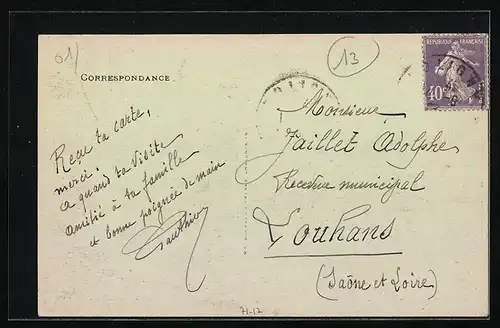 01
13
CORRESPONDANCE
RÉPUBLIQUE FRANÇAISE
40c
Reçu ta carte,
merci.
a quand ta visite
amitié à ta famille
et bonne poignée de main
Gauthier
Monsieur
Jaillet Adolphe
Receveur municipal
Louhans
(Saône et Loire)
71-17